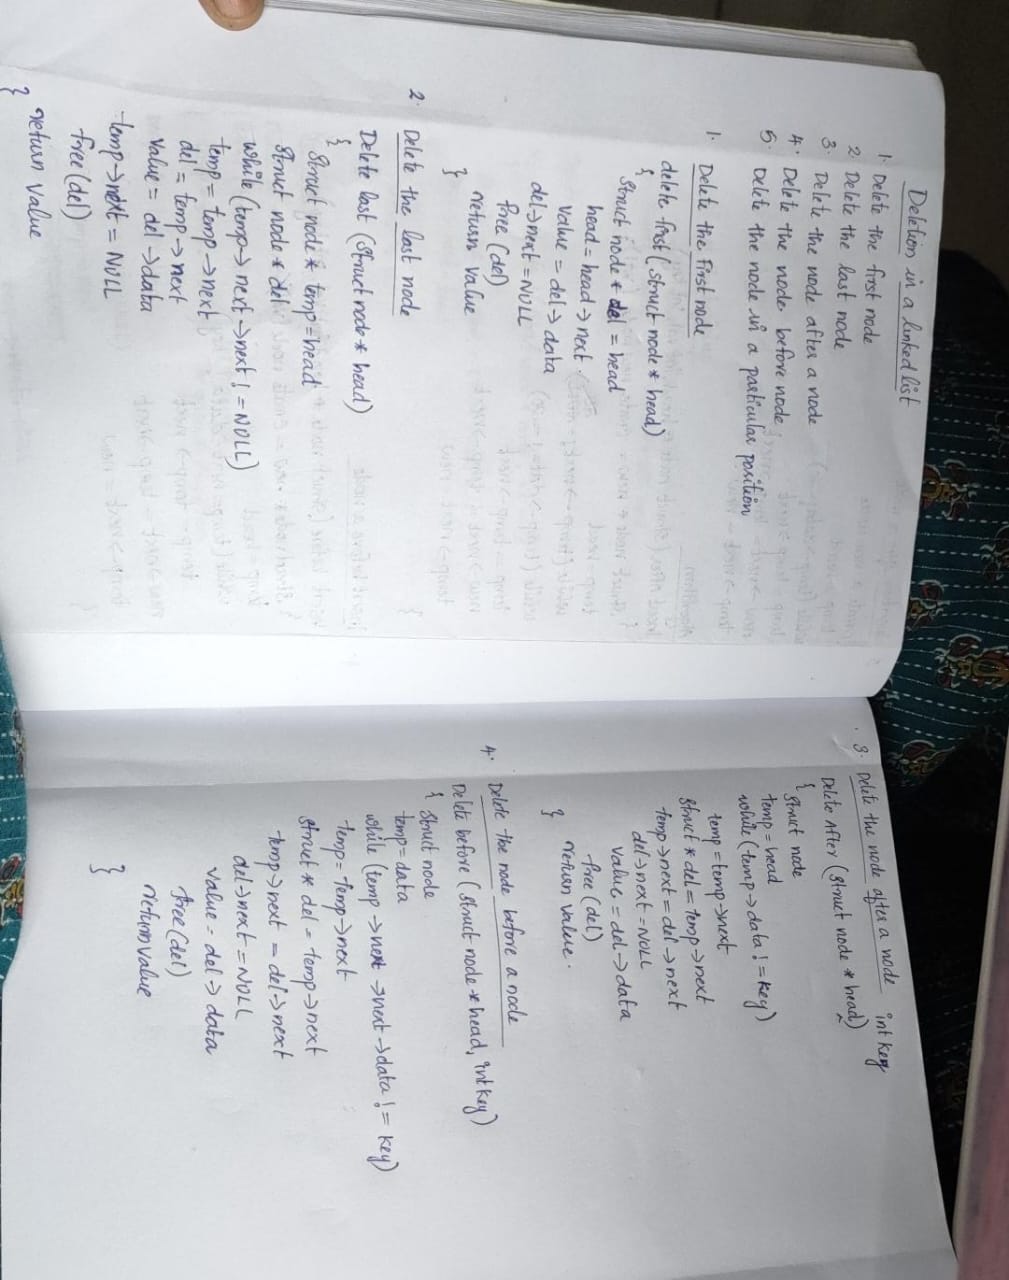 Deletion in a linked list
1. Delete the first node
2 Delete the last node
3. Delete the node after a node
4. Delete the node before node
5. Delete the node in a particular position
1. Delete the first node
delete first (struct node * head)
{
struct node * del = head
head = head → next.
value = del → data
del → next = NULL
free (del)
return value
}
2. Delete the last node
Delete last (struct node * head)
{
struct node * temp = head
struct node * del
while (temp → next → next != NULL)
temp = temp → next
del = temp → next
value = del → data
temp → next = NULL
free (del)
return value
}
3. Delete the node after a node
int key
Delete After (struct node * head)
{ struct node
temp = head
while (temp → data != key)
temp = temp → next
struct * del = temp → next
temp → next = del → next
del → next = NULL
value = del → data
free (del)
return value.
}
4. Delete the node before a node
Delete before (struct node * head, int key)
{ struct node
temp = data
while (temp → next → next → data != key)
temp = temp → next
struct * del = temp → next
temp → next = del → next
del → next = NULL
value = del → data
free (del)
return value
}